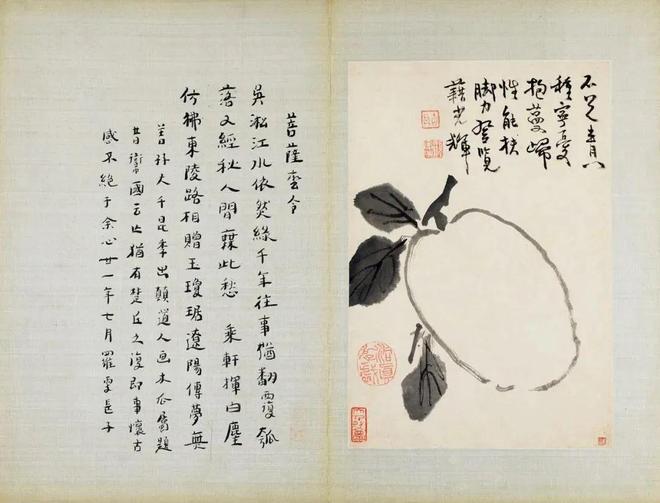 不足青門
種寧憂
抱蔓歸
性能扶
脚力登覽
藉光輝
菩薩令
吳淞江水依然綠千年往事猶翻覆瓠
落又經秋人間此愁 乘軒揮白麈
彷彿東陵路相贈玉瓊琚遼陽傳夢無
善孖大千昆季出顛道人画木瓜屬題
昔衛國云亡猶有楚丘之復即事懷古
感不絕于余心廿一年七月羅長子